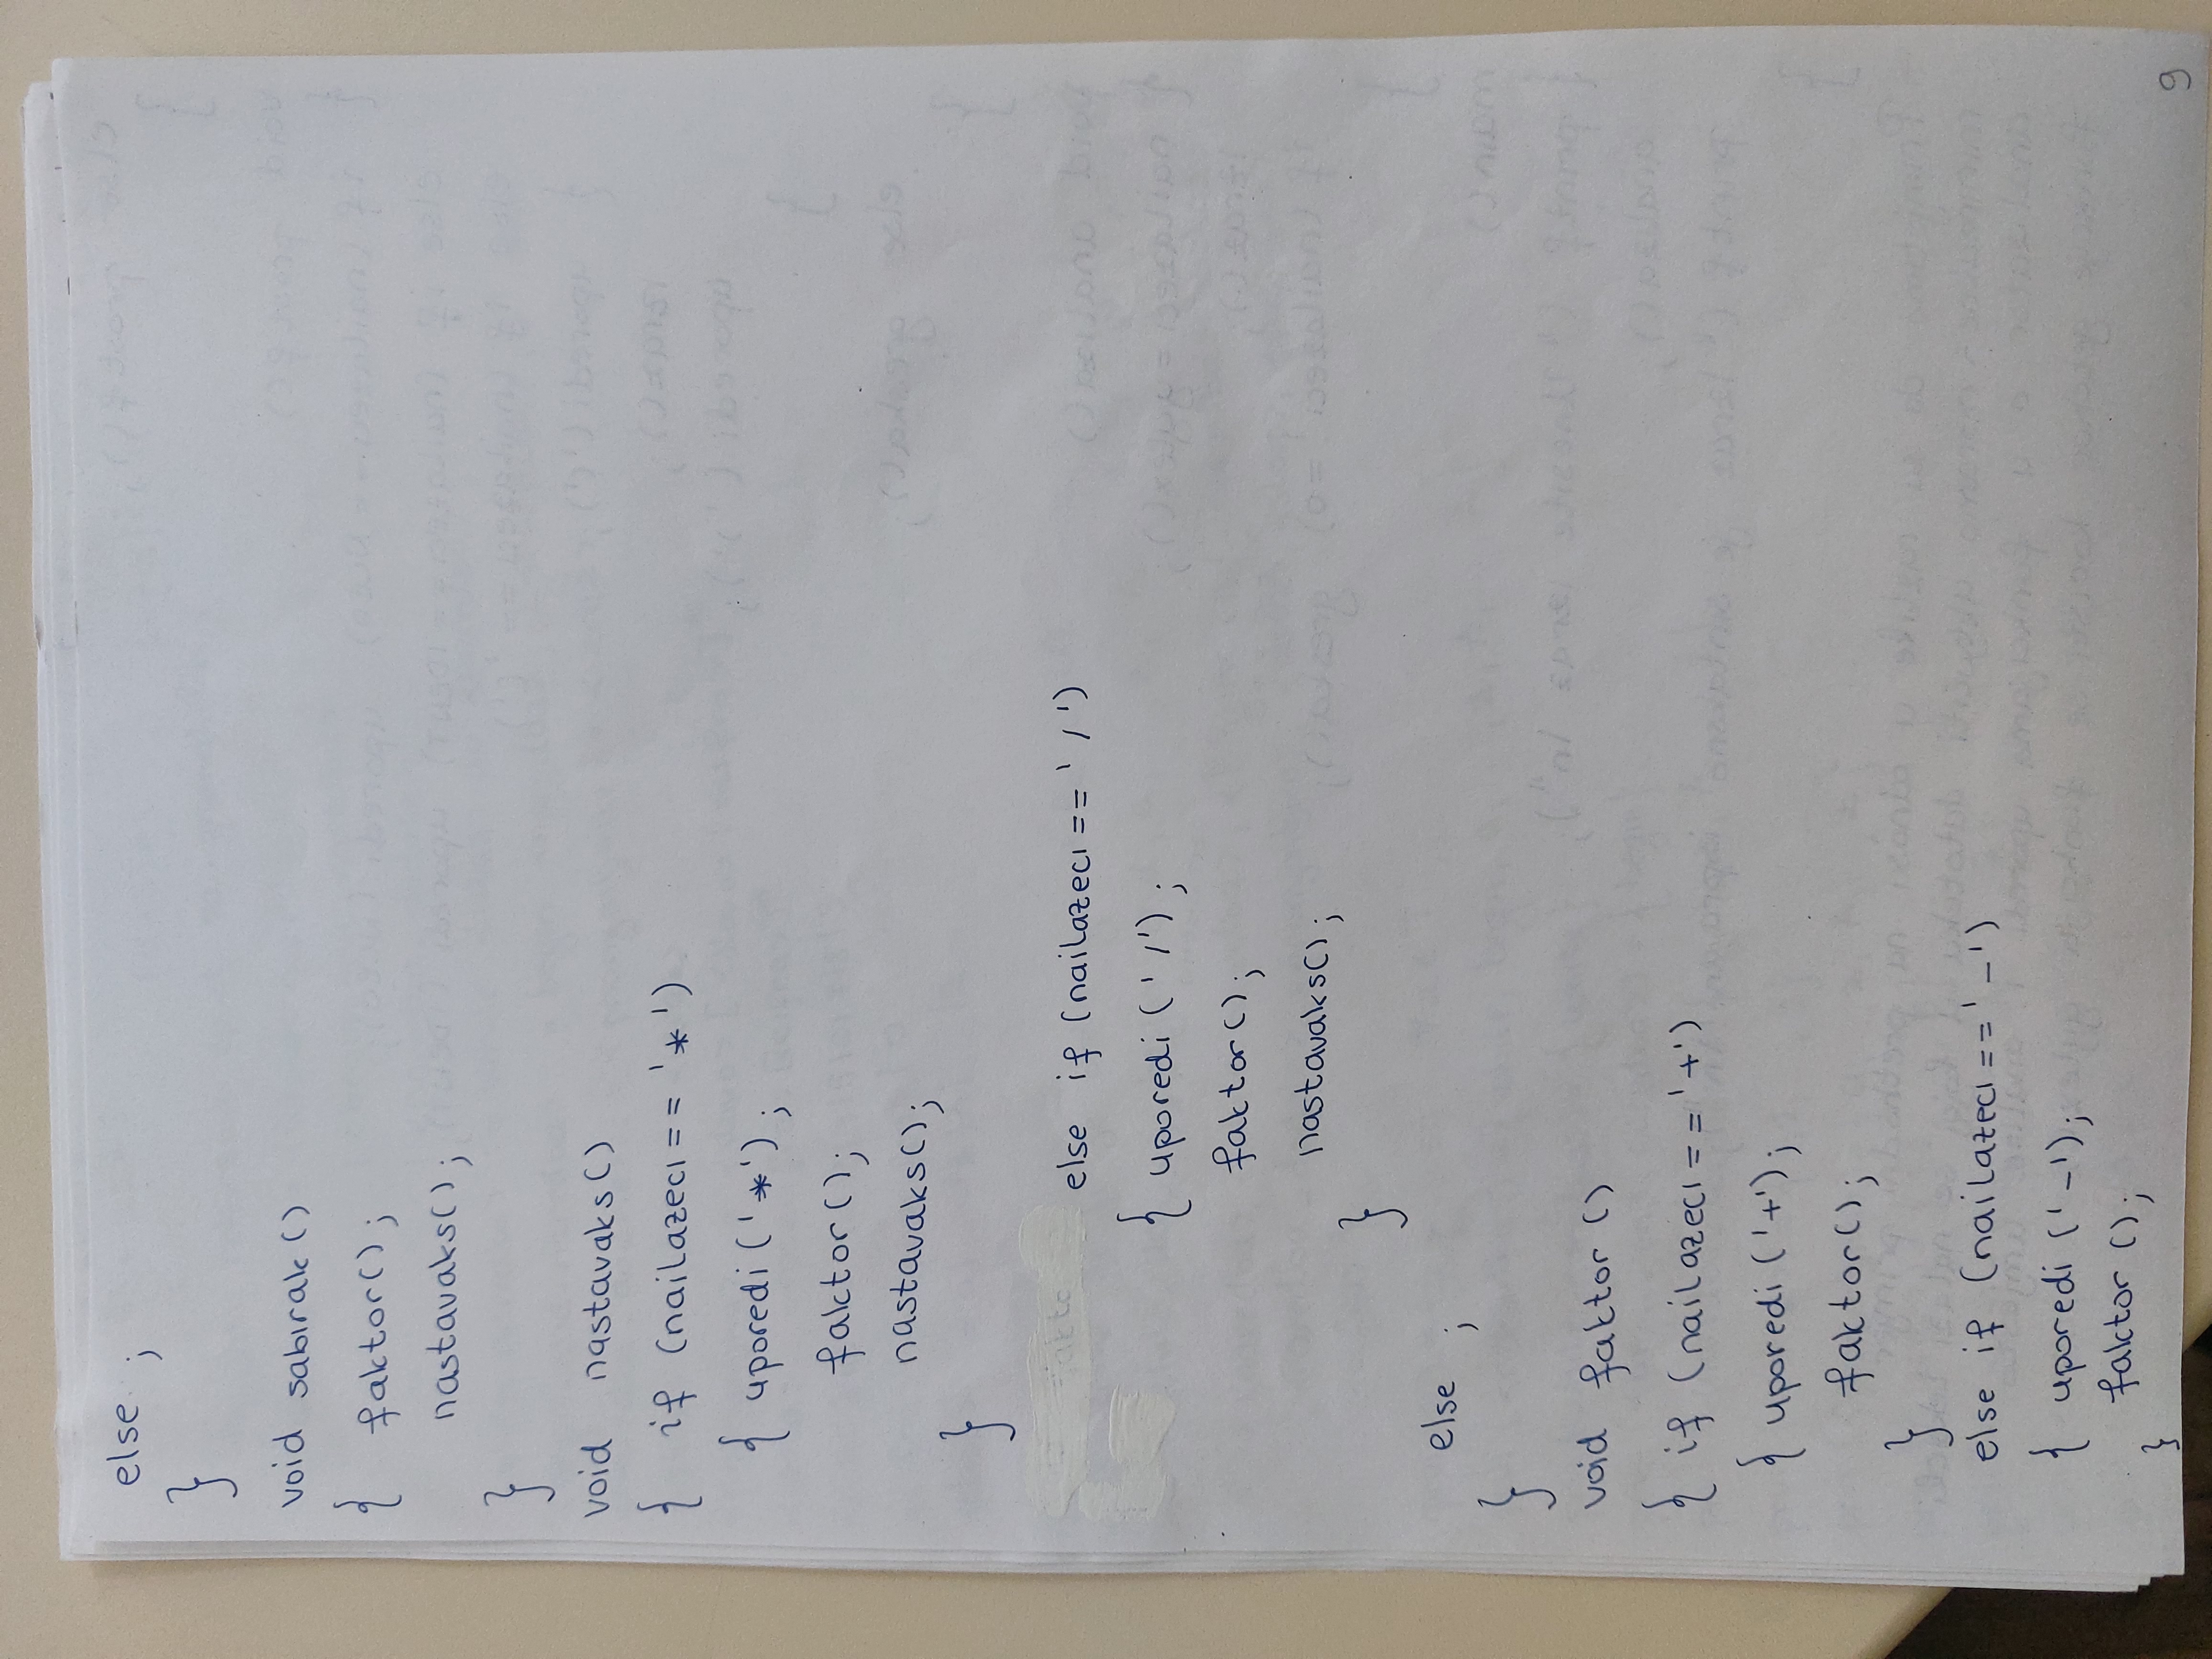 else ;
}
void sabırak ()
{ faktor();
nastavaks();
}
void nastavaks()
{ if (nailazecı == '*')
{ uporedi ('*');
faktor();
nastavaks();
}
else if (nailazecı == '/')
{ uporedi ('/');
faktor();
nastavaks();
}
else ;
}
void faktor ()
{ if (nailazecı == '+')
{ uporedi ('+');
faktor();
}
else if (nailazecı == '-')
{ uporedi ('-');
faktor ();
}
9